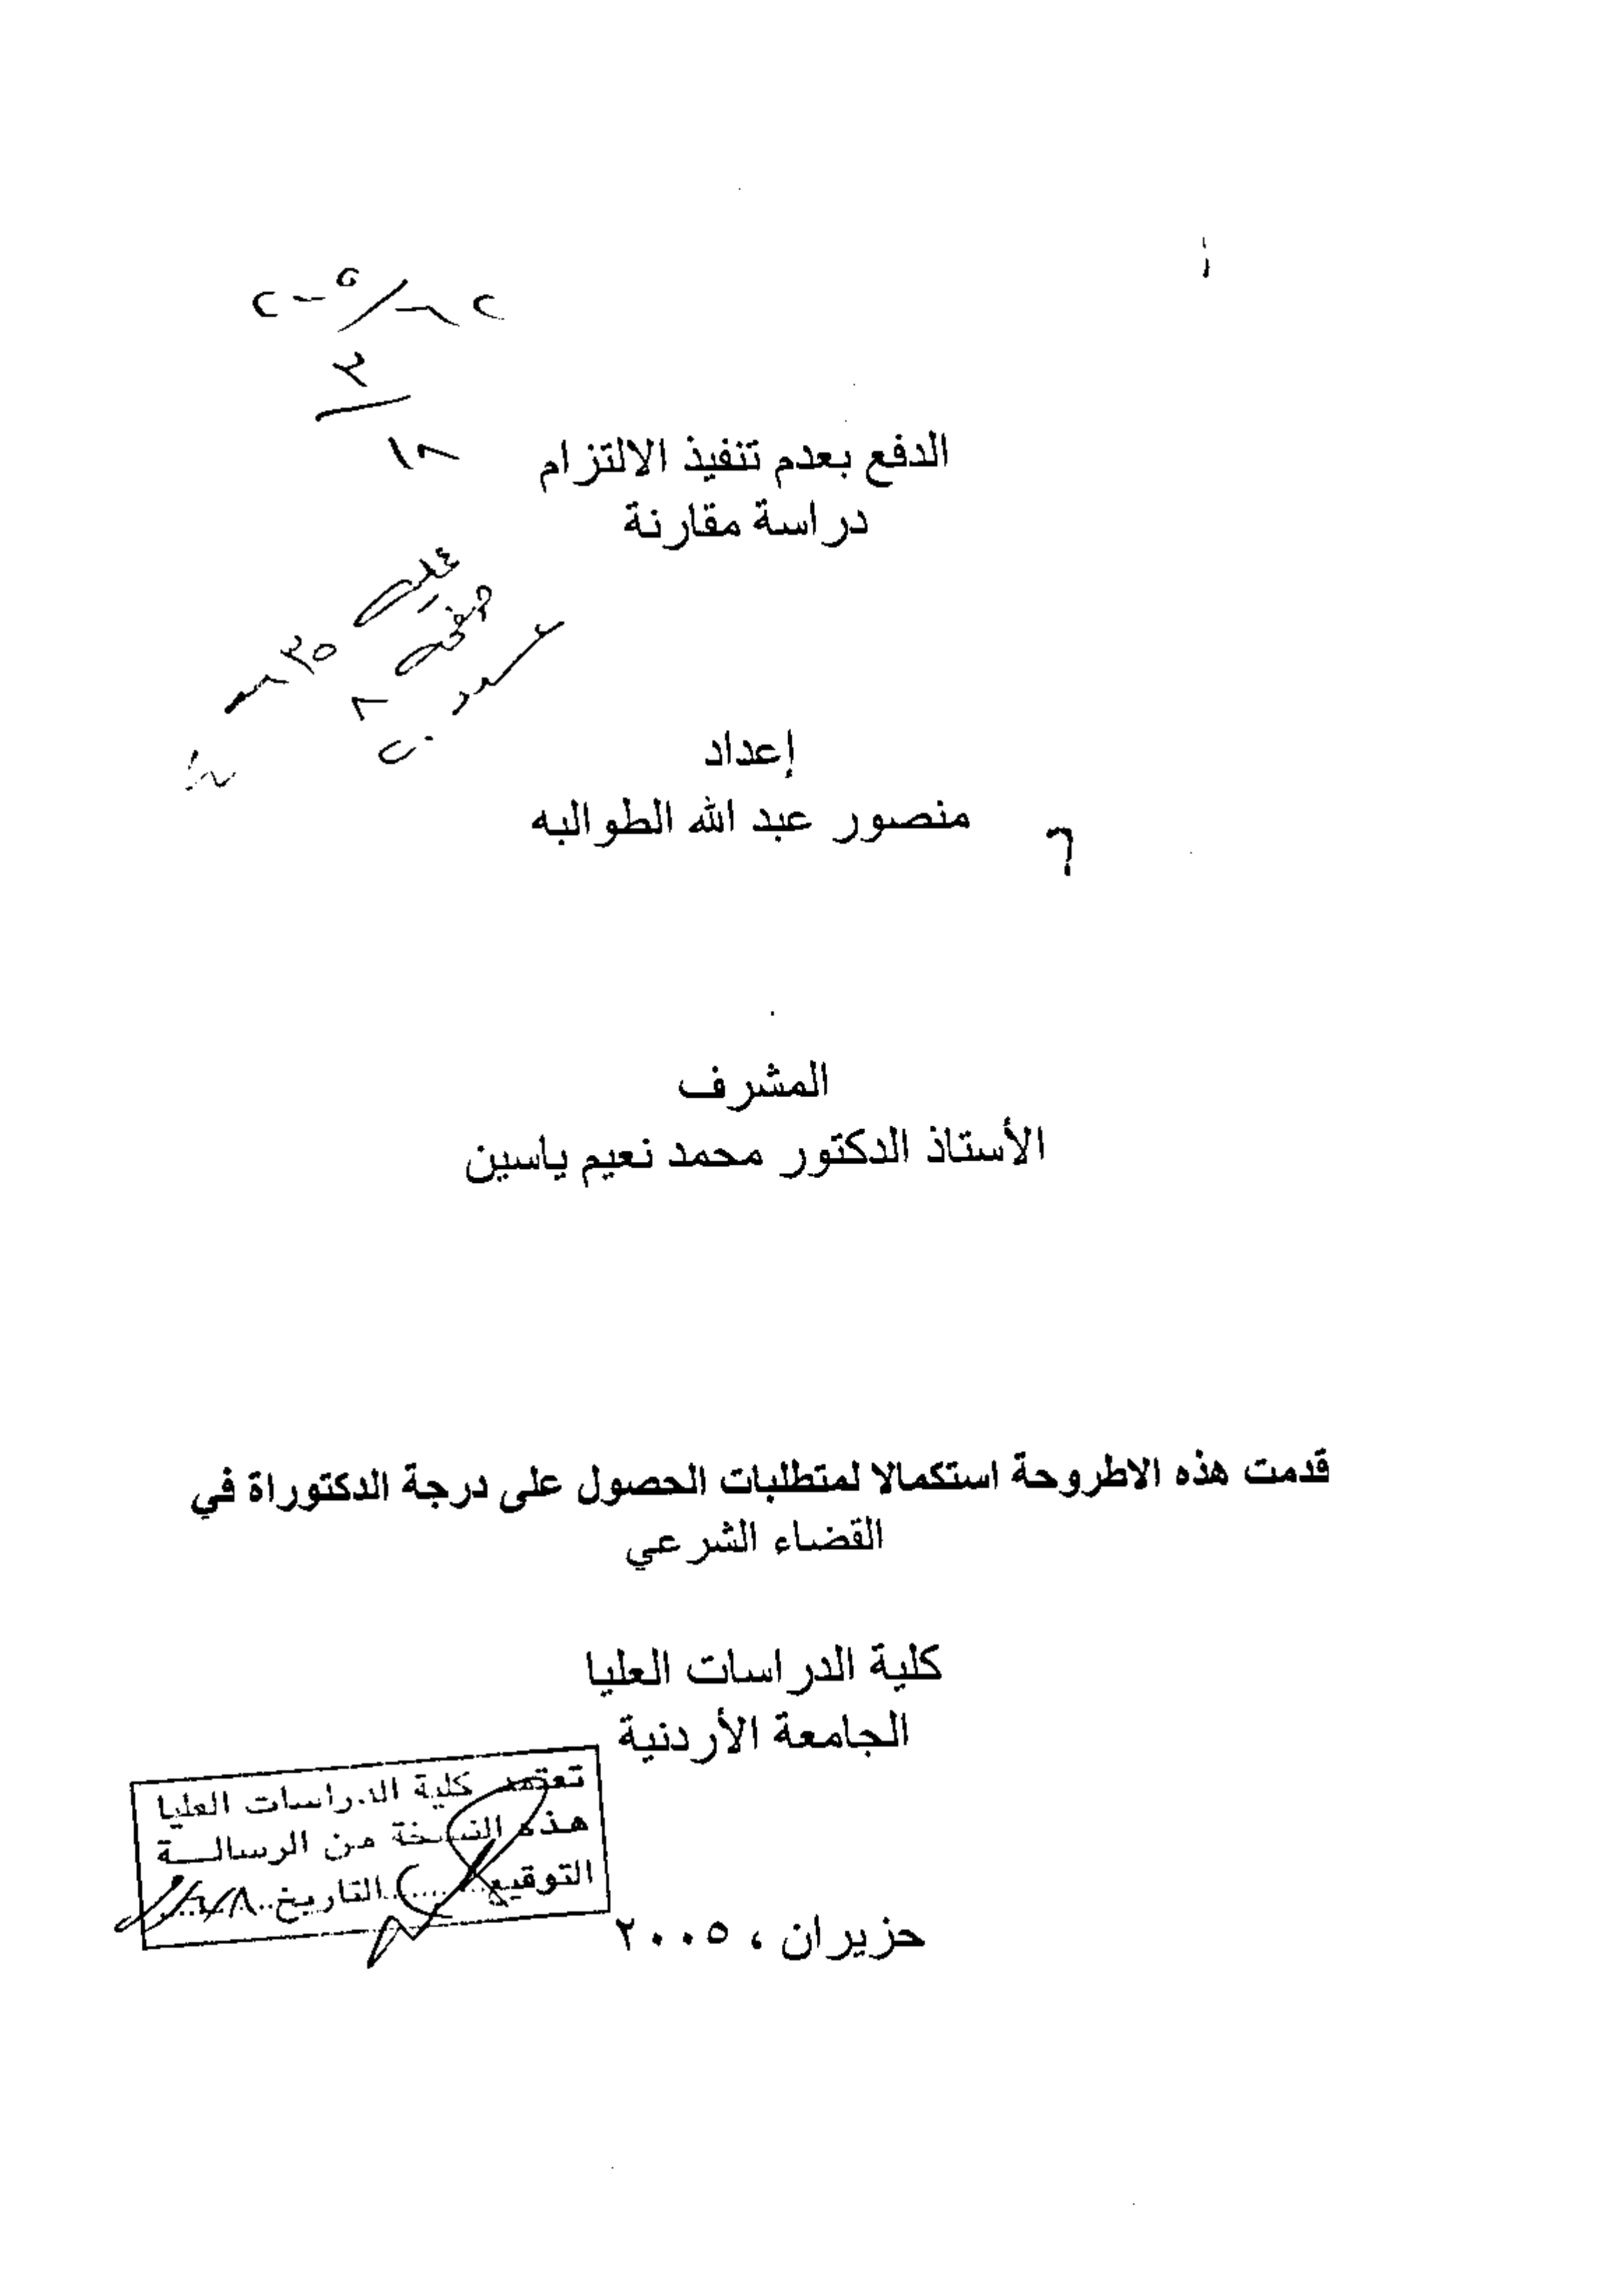 الدفع بعدم تنفيذ الالتزام
دراسة مقارنة
إعداد
منصور عبد الله الطوالبه
المشرف
الأستاذ الدكتور محمد نعيم ياسين
قدمت هذه الاطروحة استكمالا لمتطلبات الحصول على درجة الدكتوراة في
القضاء الشرعي
كلية الدراسات العليا
الجامعة الأردنية
تعتمد كلية الدراسات العليا
هذه النسخة من الرسالـــة
التوقيع.........التاريخ
حزيران ، ٢٠٠٥